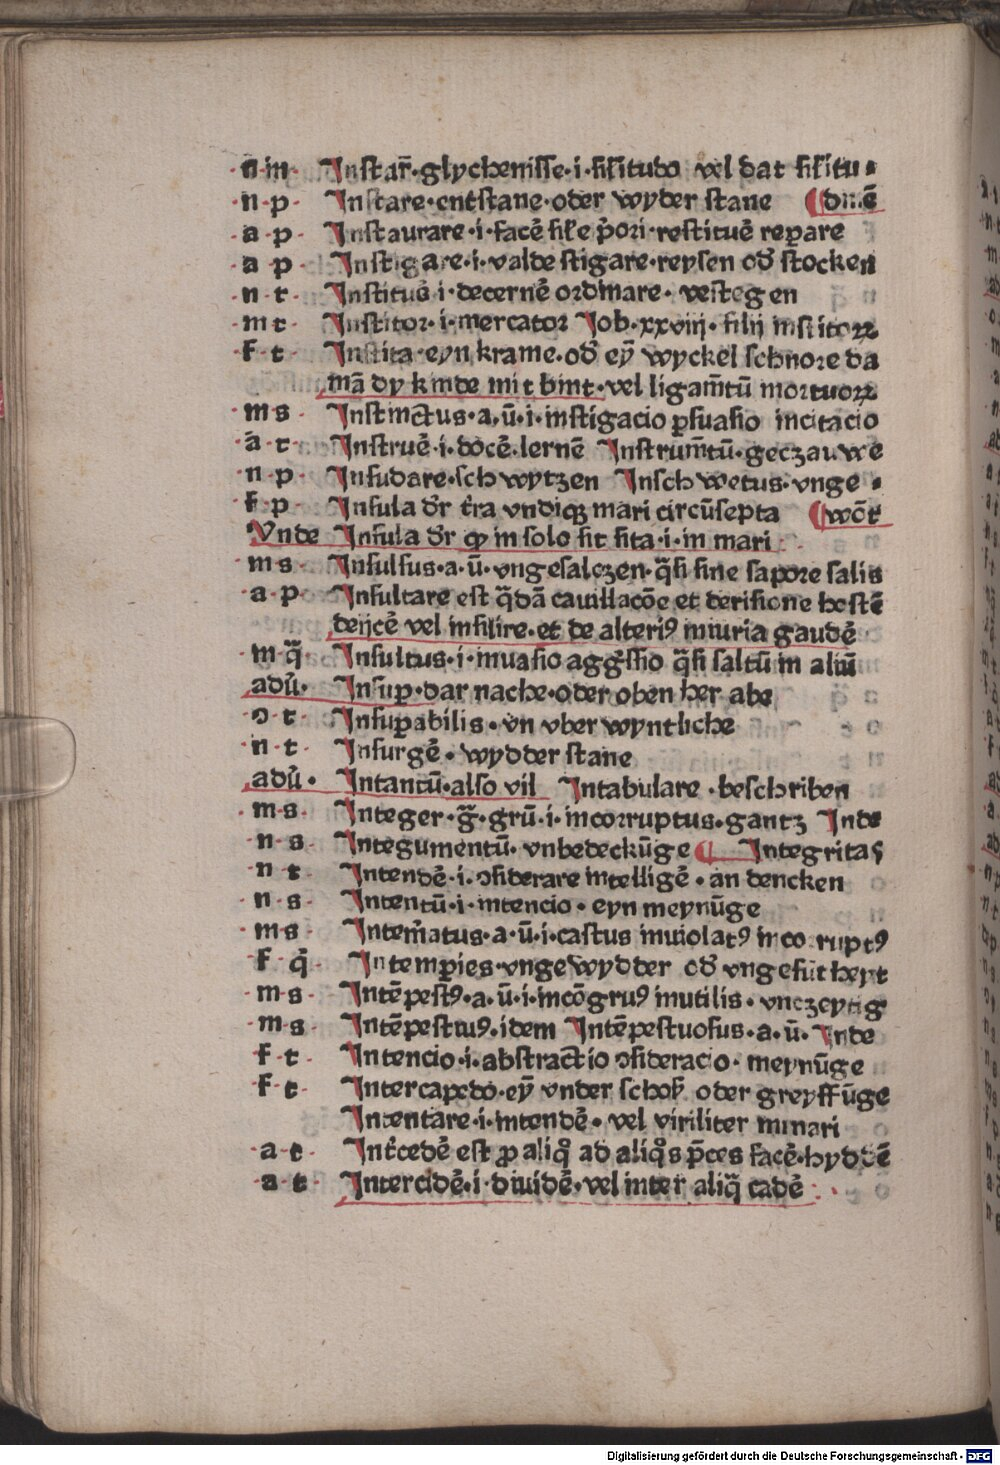 ·n·in· Instar̃·glychenisse·i·sil̃itudo vel dat sil̃itu·
·n·p· Instare·entstane·oder wyder stane ¶dinē
·a·p· Instaurare·i·facē sil̃e p̃ori·restituē reꝑare
·a·p· Instigare·i·valde stigare·reysen od̾ stocken
·n·t· Instituē·i·decernē ordinare·vestegen
·m·t· Institor·i·mercator Job·xxviij·filij institoꝝ
·f·t· Instita·eyn krame·od̾ eỹ wyckel schnore da
mā dy kinde mit bint·vel ligam̄tū mortuoꝝ
·m·s· Instinctus·a·ū·i·instigacio ꝑsuasio incitacio
·a·t· Instruē·i·docē·lernē Instrum̄tū·geczauwe
·n·p· Insudare·schwytzen Inschwetus·vnge·
·f·p· Insula dr̃ t̃ra vndiqꝫ mari circūsepta ¶wōt
Vnde Insula dr̃ ꝙ in solo sit sita·i·in mari
·m·s· Insulsus·a·ū·vngesalczen·q̃si sine sapore salis
·a·p· Insultare est q̃dā cauillacōe et derisione hostē
deijcē vel insilire·et de alteriꝰ iniuria gaudē
·m·q̃· Insultus·i·inuasio agg̃ssio q̃si saltū in aliū
adu̾· Insuꝑ·dar nache·oder oben her abe
·ɔ·t· Insuꝑabilis·vn vber wyntliche
·n·t· Insurgē·wydder stane
adu̾· Intantū·also vil Intabulare·beschriben
·m·s· Integer·g̃·grū·i·incorruptus·gantz Inde
·n·s· Integumentū·vnbedeckūge ¶ Integritas
·n·t· Intendē·i·ɔsiderare intelligē·an dencken
·n·s· Intentū·i·intencio·eyn meynūge
·m·s· Intem̃atus·a·ū·i·castus inuiolatꝰ incorruptꝰ
·f·q̃· Intemꝑies·vngewydder od̾ vngesūtheyt
·m·s· Intēpestꝰ·a·ū·i·incōgruꝰ inutilis·vnczeytig
·m·s· Intēpestiuꝰ·idem Intēpestuosus·a·ū·Inde
·f·t· Intencio·i·abstractio ɔsideracio·meynūge
·f·t· Intercapedo·eỹ vnder schoh̾ oder greyffūge
Intentare·i·intendē·vel viriliter minari
·a·t· Int̾cedē est ꝓ aliq̊ ad aliq̊s p̄ces facē·byddē
·a·t· Intercidē·i·diuidē·vel inter aliq̃ cadē
Digitalisierung gefördert durch die Deutsche Forschungsgemeinschaft - DFG